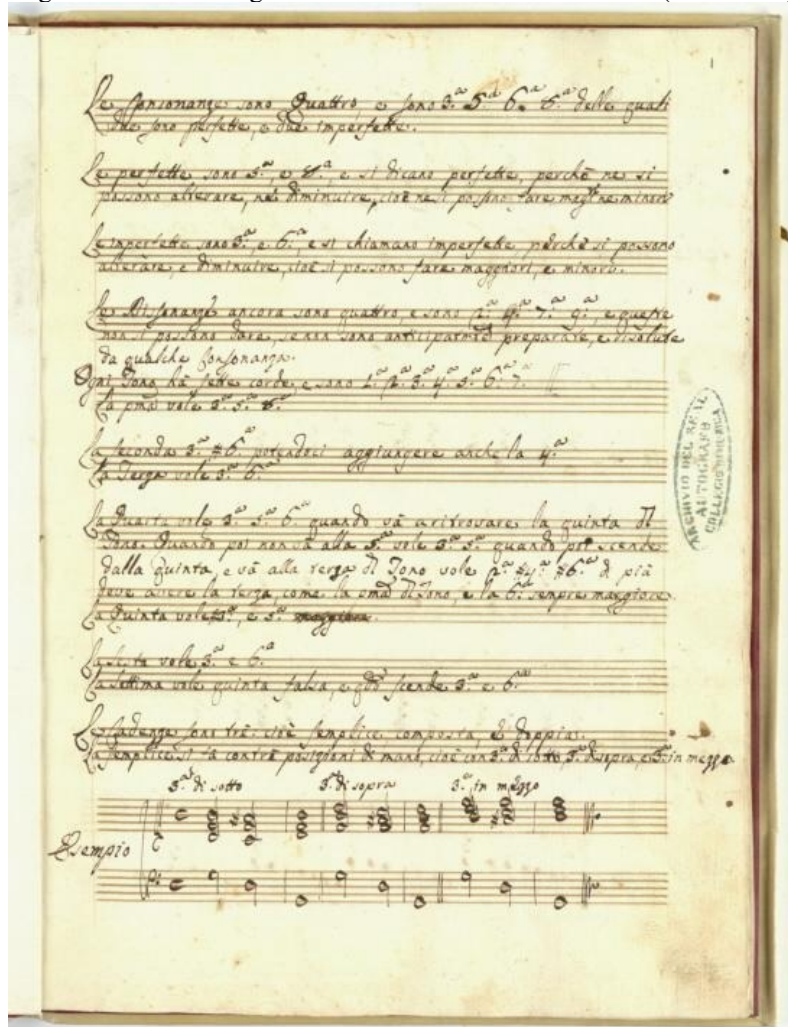 1
Le Consonanze sono Quattro, e sono 3.a 5.a 6.a 8.a delle quali
due sono perfette, e due imperfette.
Le perfette sono 5.a, e 8.a, e si dicano perfette, perchè ne si
possono alterare, nè diminuire, cioè ne si possono fare magg.ri ne minori
Le imperfette sono 3.a e 6.a, e si chiamano imperfette perchè si possono
alterare, e diminuire, cioè si possono fare maggiori, e minori.
Le Dissonanze ancora sono quattro, e sono 2.a 4.a 7.a 9.a, e queste
non si possono dare, se non sono anticipatam.te preparate, e risolute
da qualche Consonanza.
Ogni Tono hà sette corde e sono 1.a 2.a 3.a 4.a 5.a 6.a 7.a
La pma vole 3.a 5.a 8.a
La seconda 3.a #6.a potendoci aggiungere anche la 4.a
La Terza vole 3.a 6.a
La Quarta vole 3.a 5.a 6.a quando và a ritrovare la quinta di
Tono. Quando poi non và alla 5.a vole 3.a 5.a quando poi scende
dalla quinta, e và alla terza di Tono vole 2.a #4.a #6.a di più
deve avere la terza, come la pma di Tono, e la 6.a sempre maggiore
La Quinta vole #3.a, e 5.a
La sesta vole 3.a e 6.a
La settima vole quinta falsa, e qdo scende 3.a e 6.a
Le Cadenze sono trè: cioè semplice composta, e doppia.
La semplice si fà con trè posizioni di mano, cioè con 3.a di sotto, 3.a di sopra, e 3.a in mezzo
3.a di sotto 3.a di sopra 3.a in mezzo
Esempio
ARCHIVIO DEL REAL
COLLEGIO DI MUSICA
AUTOGRAFO